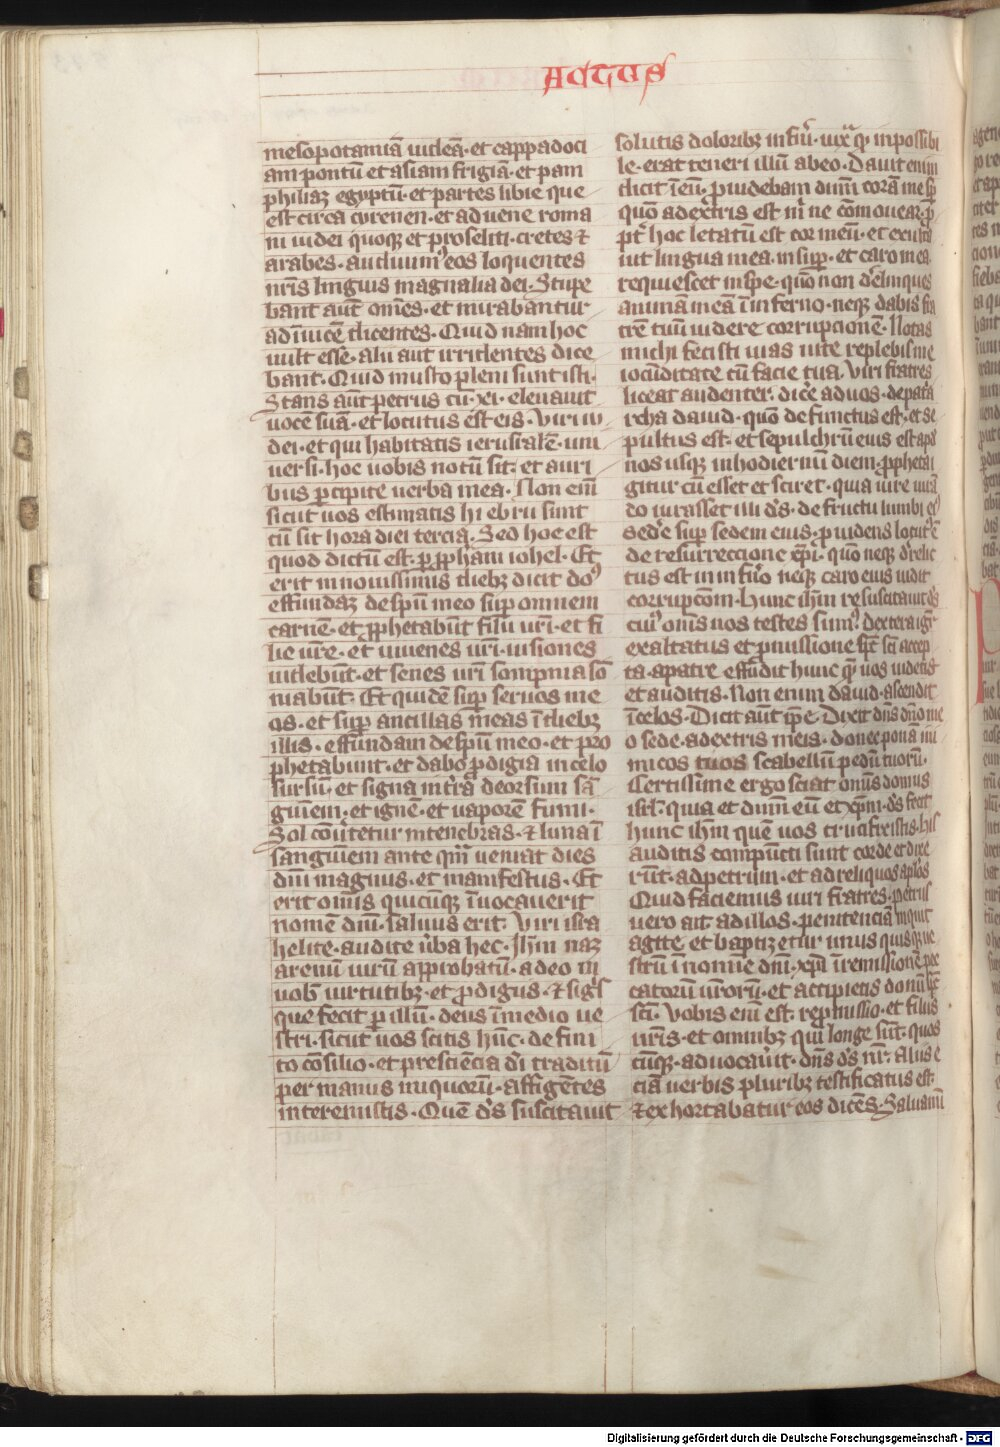 ACTUS
mesopotamiā iudeā · et cappadoci
am pontū et asiam frigiā · et pam
philiaꝫ egyptū · et partes libie que
est circa cyrenen · et aduene roma
ni iudei quoqꝫ et proseliti · cretes ⁊
arabes · audiuimꝰ eos loquentes
nr̄is linguis magnalia dei · Stupe
bant aut̄ om̄es · et mirabantur
ad īuicē dicentes · Quid nam hoc
uult esse · alii aut̄ irridentes dice
bant · Quid musto pleni sunt isti ·
Stans aut̄ petrus cū · xi · eleuauit
uocē suā · et locutus est eis · Viri iu
dei · et qui habitatis ierusalē · uni
uersi · hoc uobis notū sit · et auri
bus ꝑcipite uerba mea · Non eni̅
sicut uos estimatis hi ebrii sunt
cū sit hora diei tercia · Sed hoc est
quod dictū est · ꝑ ꝓpham iohel · Et
erit in nouissimis diebꝫ dicit doꝰ
effundaꝫ de spū meo suꝑ omnem
carnē · et ꝓphetabūt filii uri̅ · et fi
lie ur̄e · et iuuenes uri̅ · uisiones
uidebūt · et senes uri̅ sompnia sō
niabūt · Et quidē suꝑ seruos me
os · et suꝑ ancillas meas ī diebꝫ
illis · effundam de spū meo · et pro
phetabunt · et dabo ꝓdigia in celo
sursū · et signa in tr̄a deorsum sā
guinem · et ignē · et uaporē fumi ·
Sol cōu̓tetur in tenebras · ⁊ luna ī
sanguinem ante qm̄ ueniat dies
dni̅ magnus · et manifestus · Et
erit omīs quicūqꝫ īuocauerit
nomē dni̅ · saluus erit · Viri isra
helite · audite u̓ba hec · Ihm̄ naꝫ
arenū uirū approbatū · a deo in
uob̄ uirtutibꝫ · et ꝓdigiis · ⁊ sigis
que fecit ꝑ illū · deus ī medio ue
stri · sicut uos scitis hūc · de fini
to cōsilio · et presciēcia di̅ traditū
per manus iniquorū · affigētes
interemistis · Quē ds̄ suscitauit
solutis doloribꝫ infn̓i · iuxᵃ qᵈ inpossibi
le · erat teneri illū ab eo · Dauit enim
dicit ī eū · Prouidebam dnm̄ corā me sꝑ
quō a dextris est m̓ ne cōmouear · ꝓ
pt̓ hoc letatū est cor meū · et exulta
uit lingua mea · insuꝑ · et caro mea
requiescet in spe · quōn derelinques
animā meā ī inferno · neqꝫ dabis scā
tuū uidere corrupcionē · Notas
michi fecisti uias uite replebis me
iocūditate cū facie tua · Viri fratres
liceat audenter · dice̓ ad uos · de patᵃ
rcha dauid · quō defunctus est · et se
pultus est · et sepulchrū eius est apᵈ
nos usqꝫ in hodiernū diem · ꝓpheta i
gitur cū esset et sciret · quia iure iurā
do iurasset illi ds̄ · de fructu lumbi eiꝰ
sede̓ suꝑ sedem eius · ꝓuidens locutꝰ ē
de resurreccione xp̄i · quō neqꝫ derelic
tus est in infn̓o neqꝫ caro eius uidit
corrupcōm · Hunc ihm̄ resuscitauit ds̄
cuiꝰ om̄s nos testes sumꝰ · Dextera igr̄
exaltatus et ꝓmissione spc̄ sci̅ accep
ta · a patre effudit hunc quē uos uidetis
et auditis · Non enim dauid · ascendit
ī celos · Dicit aut̄ ip̄e · Dixit dn̄s dn̄o me
o sede · a dextris meis · donec ponā ini
micos tuos scabellū pedū tuorū ·
Certissime ergo sciat om̄s domus
isrl̄ · quia et dnm̄ eū et xpm̄ · ds̄ fecit
hunc ihm̄ quē uos crucifixistis · His
auditis compūcti sunt corde et dixe
rūt · ad petrum · et ad reliquos aplōs
Quid faciemus uiri fratres · petrus
uero ait ad illos · penitenciā inquit
agite et baptizetur unus quisqꝫ ue
strū ī nomie dni̅ · xp̄i ī remissionē pec
catorū ur̄orū · et accipietis donū spc̄
sci̅ · Vobis eni̅ est · repmissio · et filiis
ur̄is · et omnibꝫ qui longe sūt · quos
cūqꝫ · aduocau̓it · dn̄s ds̄ nr̄ · Aliis e
ciā uerbis pluribꝫ testificatus est
⁊ exhortabatur eos dicēs · Saluami̅
Digitalisierung gefördert durch die Deutsche Forschungsgemeinschaft - DFG